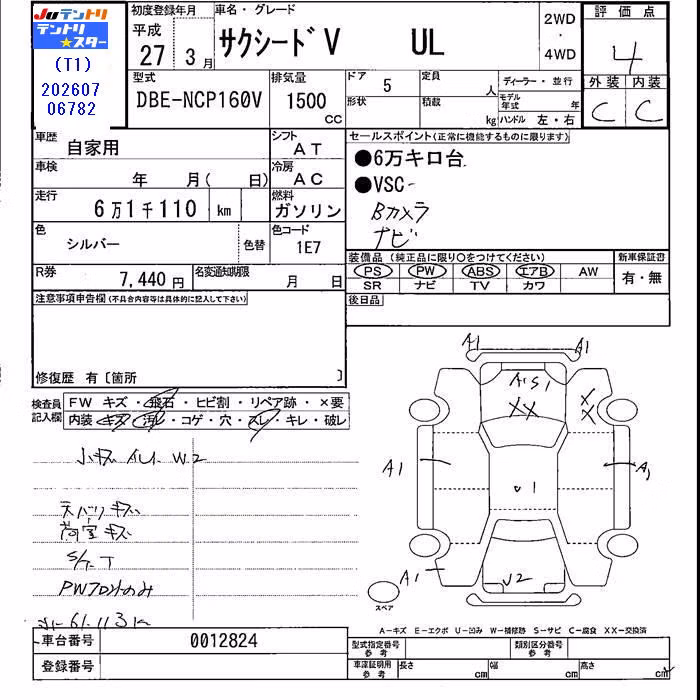 Juテントリ
テントリ★スター
(T1)
202607
06782
初度登録年月
平成
27 3月
車名・グレード
サクシードV UL
2WD
・
4WD
評価点
4
型式
DBE-NCP160V
排気量
1500
CC
ドア 5
形状
定員 人
積載 kg
ディーラー・並行
モデル年式 年
ハンドル 左・右
外装 内装
C C
車歴 自家用
シフト AT
車検 年 月( 日)
冷房 AC
走行 6万1千110 km
燃料 ガソリン
色 シルバー 色替
色コード 1E7
R券 7,440円
名変通知期限 月 日
セールスポイント(正常に機能するものに限ります)
●6万キロ台
●VSC
Bカメラ
ナビ
装備品(純正品に限り○をつけてください)
PS PW ABS エアB AW
SR ナビ TV カワ
新車保証書
有・無
後日品
注意事項申告欄(不具合内容等は具体的に記入して下さい)
修復歴 有〔箇所 〕
検査員記入欄
FW キズ・飛石・ヒビ割・リペア跡・×要
内装・キズ・汚レ・コゲ・穴・スレ・キレ・破レ
小キズ W2
天バリキズ
荷室キズ
PWフロントのみ
A1 A1
A1 S1
XX
X
X
A1
A1
1
A1
U2
スペア
A-キズ E-エクボ U-凹み W-補修跡 S-サビ C-腐食 XX-交換済
車台番号 0012824
登録番号
型式指定番号 参考
類別区分番号 参考
車庫証明用 参考
長さ cm
幅 cm
高さ cm